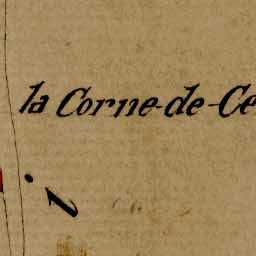 la Corne-de-Ce
i